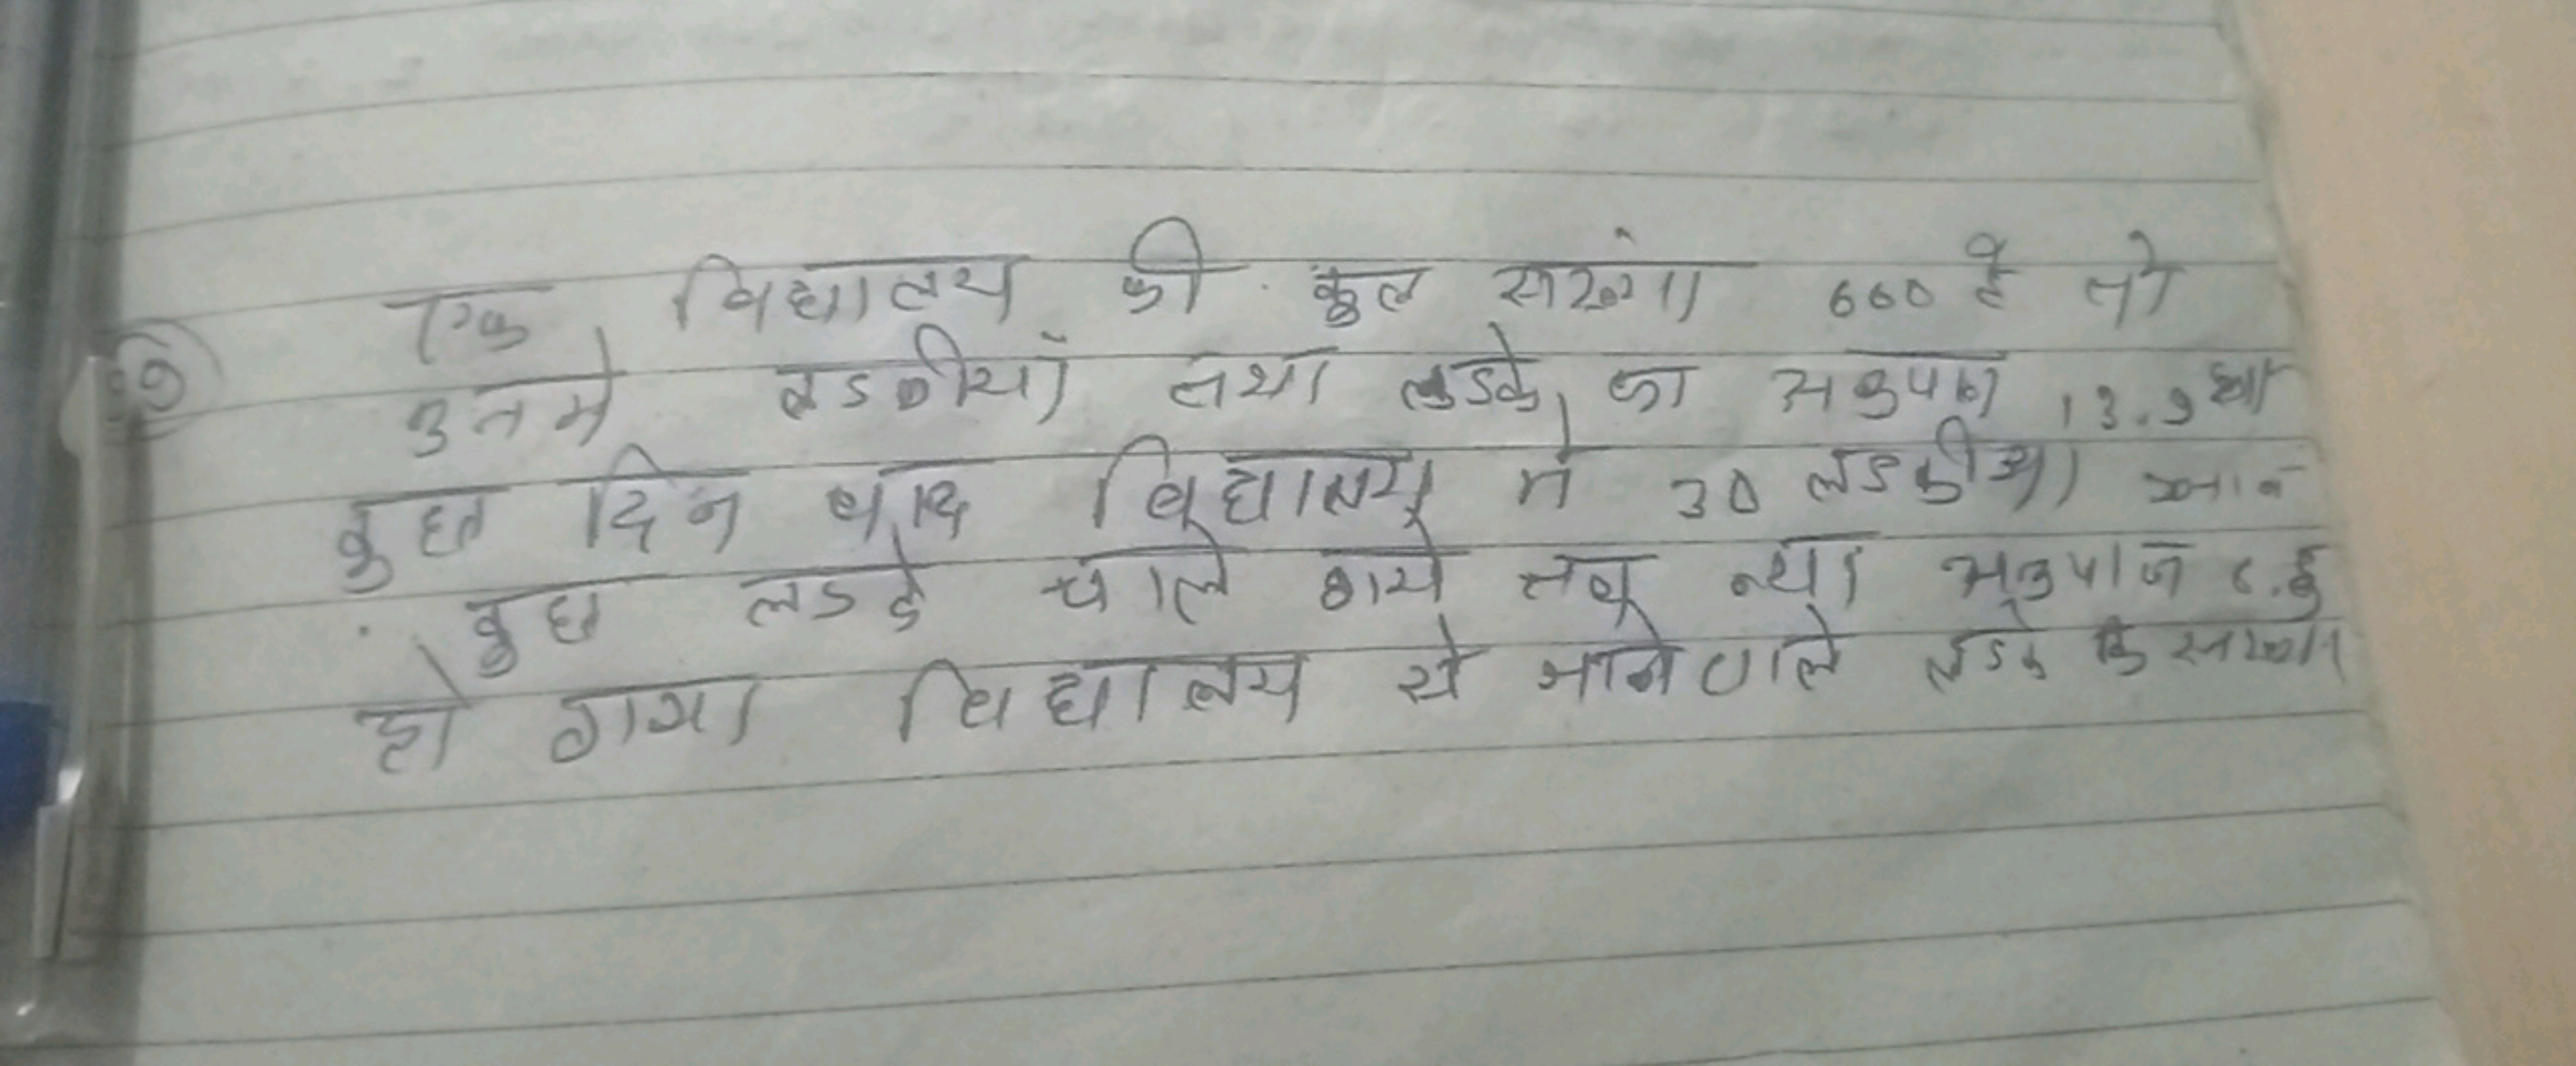 एक विद्यालय की कुल संख्या 660 है तो
उनमे लडकीयाँ तथा लडके का अनुपात 13.9 था
कुछ दिन बाद विद्यालय मे 30 लडकीया आने
कुछ लडके चाले गये तब नया अनुपात
हो गया विद्यालय से जानेवाले लडके कि संख्या